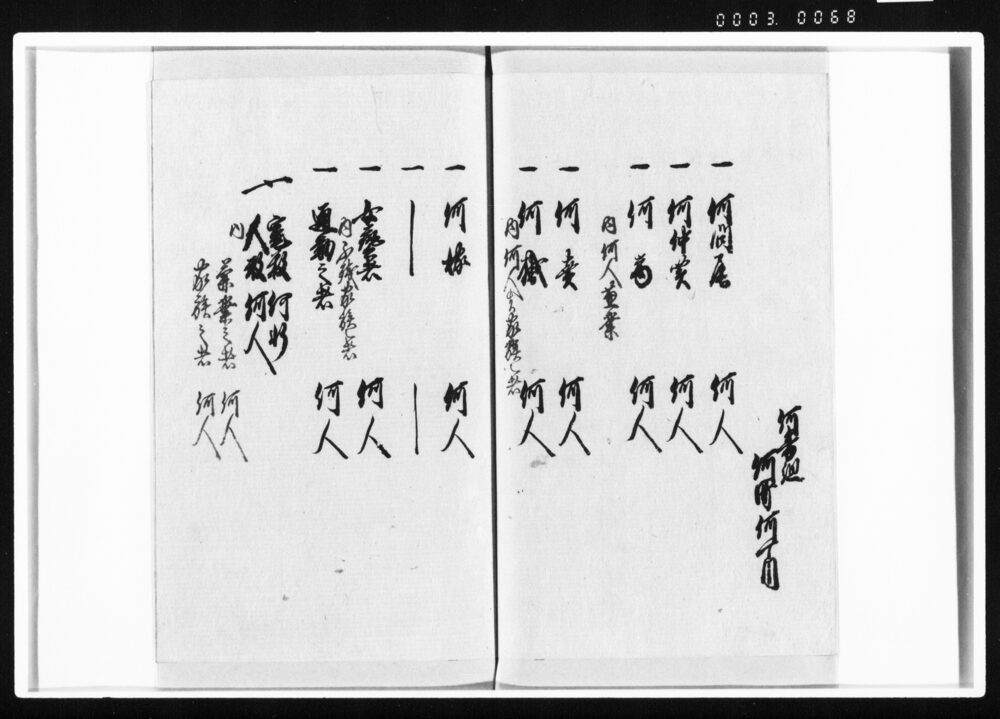 0003.0068
何番組
何町何丁目
一 何問屋 何人
一 何仲買 何人
一 何商 何人
内何人兼業
一 何売 何人
一 何職 何人
内何人家族之者
一 何稼 何人
一
一 何人
内 家族之者
一 通勤之者 何人
一 竈数何軒
人数何人
内 営業之者 何人
家族之者 何人